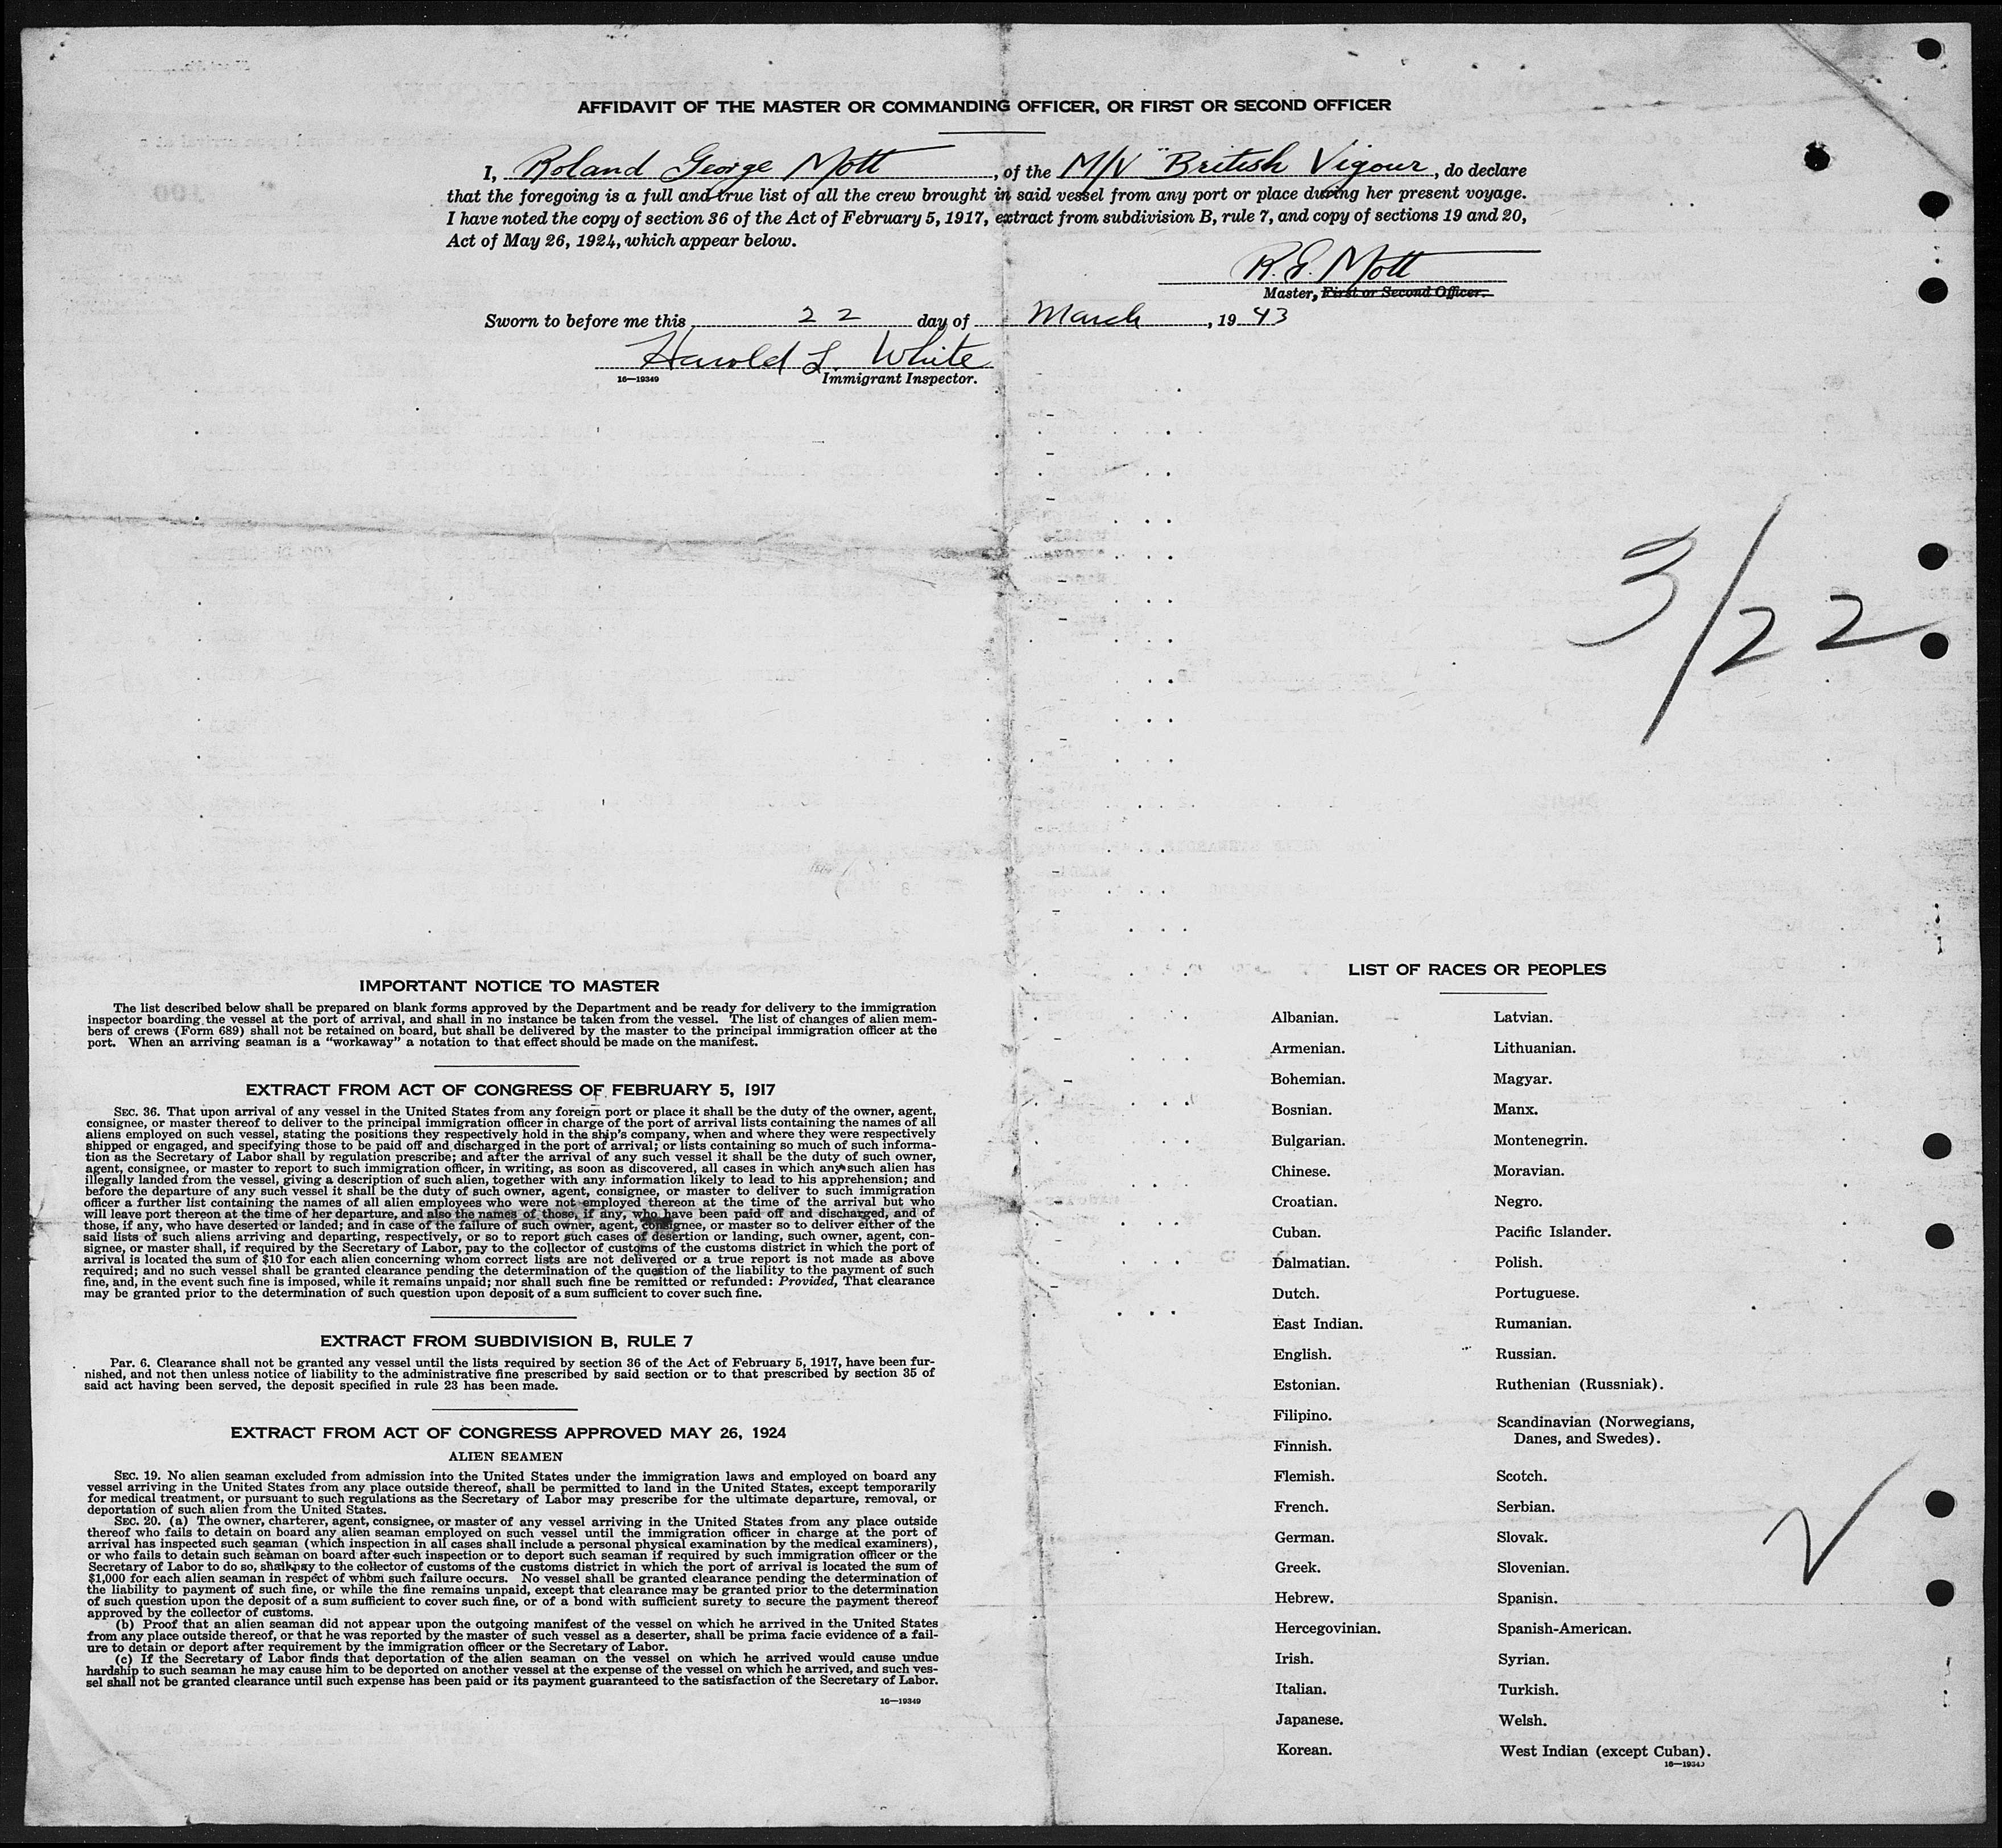 AFFIDAVIT OF THE MASTER OR COMMANDING OFFICER, OR FIRST OR SECOND OFFICER
I, Roland George Mott, of the M/V "British Vigour, do declare
that the foregoing is a full and true list of all the crew brought in said vessel from any port or place during her present voyage.
I have noted the copy of section 36 of the Act of February 5, 1917, extract from subdivision B, rule 7, and copy of sections 19 and 20,
Act of May 26, 1924, which appear below.
R. G. Mott
Master, First or Second Officer.
Sworn to before me this 22 day of March, 1943
Harold L. White
16—19349 Immigrant Inspector.
3/22
IMPORTANT NOTICE TO MASTER
The list described below shall be prepared on blank forms approved by the Department and be ready for delivery to the immigration
inspector boarding the vessel at the port of arrival, and shall in no instance be taken from the vessel. The list of changes of alien mem-
bers of crews (Form 689) shall not be retained on board, but shall be delivered by the master to the principal immigration officer at the
port. When an arriving seaman is a "workaway" a notation to that effect should be made on the manifest.
EXTRACT FROM ACT OF CONGRESS OF FEBRUARY 5, 1917
SEC. 36. That upon arrival of any vessel in the United States from any foreign port or place it shall be the duty of the owner, agent,
consignee, or master thereof to deliver to the principal immigration officer in charge of the port of arrival lists containing the names of all
aliens employed on such vessel, stating the positions they respectively hold in the ship's company, when and where they were respectively
shipped or engaged, and specifying those to be paid off and discharged in the port of arrival; or lists containing so much of such informa-
tion as the Secretary of Labor shall by regulation prescribe; and after the arrival of any such vessel it shall be the duty of such owner,
agent, consignee, or master to report to such immigration officer, in writing, as soon as discovered, all cases in which any such alien has
illegally landed from the vessel, giving a description of such alien, together with any information likely to lead to his apprehension; and
before the departure of any such vessel it shall be the duty of such owner, agent, consignee, or master to deliver to such immigration
officer a further list containing the names of all alien employees who were not employed thereon at the time of the arrival but who
will leave port thereon at the time of her departure, and also the names of those, if any, who have been paid off and discharged, and of
those, if any, who have deserted or landed; and in case of the failure of such owner, agent, consignee, or master so to deliver either of the
said lists of such aliens arriving and departing, respectively, or so to report such cases of desertion or landing, such owner, agent, con-
signee, or master shall, if required by the Secretary of Labor, pay to the collector of customs of the customs district in which the port of
arrival is located the sum of $10 for each alien concerning whom correct lists are not delivered or a true report is not made as above
required; and no such vessel shall be granted clearance pending the determination of the question of the liability to the payment of such
fine, and, in the event such fine is imposed, while it remains unpaid; nor shall such fine be remitted or refunded: Provided, That clearance
may be granted prior to the determination of such question upon deposit of a sum sufficient to cover such fine.
EXTRACT FROM SUBDIVISION B, RULE 7
Par. 6. Clearance shall not be granted any vessel until the lists required by section 36 of the Act of February 5, 1917, have been fur-
nished, and not then unless notice of liability to the administrative fine prescribed by said section or to that prescribed by section 35 of
said act having been served, the deposit specified in rule 23 has been made.
EXTRACT FROM ACT OF CONGRESS APPROVED MAY 26, 1924
ALIEN SEAMEN
SEC. 19. No alien seaman excluded from admission into the United States under the immigration laws and employed on board any
vessel arriving in the United States from any place outside thereof, shall be permitted to land in the United States, except temporarily
for medical treatment, or pursuant to such regulations as the Secretary of Labor may prescribe for the ultimate departure, removal, or
deportation of such alien from the United States.
SEC. 20. (a) The owner, charterer, agent, consignee, or master of any vessel arriving in the United States from any place outside
thereof who fails to detain on board any alien seaman employed on such vessel until the immigration officer in charge at the port of
arrival has inspected such seaman (which inspection in all cases shall include a personal physical examination by the medical examiners),
or who fails to detain such seaman on board after such inspection or to deport such seaman if required by such immigration officer or the
Secretary of Labor to do so, shall pay to the collector of customs of the customs district in which the port of arrival is located the sum of
$1,000 for each alien seaman in respect of whom such failure occurs. No vessel shall be granted clearance pending the determination of
the liability to payment of such fine, or while the fine remains unpaid, except that clearance may be granted prior to the determination
of such question upon the deposit of a sum sufficient to cover such fine, or of a bond with sufficient surety to secure the payment thereof
approved by the collector of customs.
(b) Proof that an alien seaman did not appear upon the outgoing manifest of the vessel on which he arrived in the United States
from any place outside thereof, or that he was reported by the master of such vessel as a deserter, shall be prima facie evidence of a fail-
ure to detain or deport after requirement by the immigration officer or the Secretary of Labor.
(c) If the Secretary of Labor finds that deportation of the alien seaman on the vessel on which he arrived would cause undue
hardship to such seaman he may cause him to be deported on another vessel at the expense of the vessel on which he arrived, and such ves-
sel shall not be granted clearance until such expense has been paid or its payment guaranteed to the satisfaction of the Secretary of Labor.
16—19349
LIST OF RACES OR PEOPLES
Albanian. Latvian.
Armenian. Lithuanian.
Bohemian. Magyar.
Bosnian. Manx.
Bulgarian. Montenegrin.
Chinese. Moravian.
Croatian. Negro.
Cuban. Pacific Islander.
Dalmatian. Polish.
Dutch. Portuguese.
East Indian. Rumanian.
English. Russian.
Estonian. Ruthenian (Russniak).
Filipino. Scandinavian (Norwegians,
Finnish. Danes, and Swedes).
Flemish. Scotch.
French. Serbian.
German. Slovak.
Greek. Slovenian.
Hebrew. Spanish.
Hercegovinian. Spanish-American.
Irish. Syrian.
Italian. Turkish.
Japanese. Welsh.
Korean. West Indian (except Cuban).
16—19349